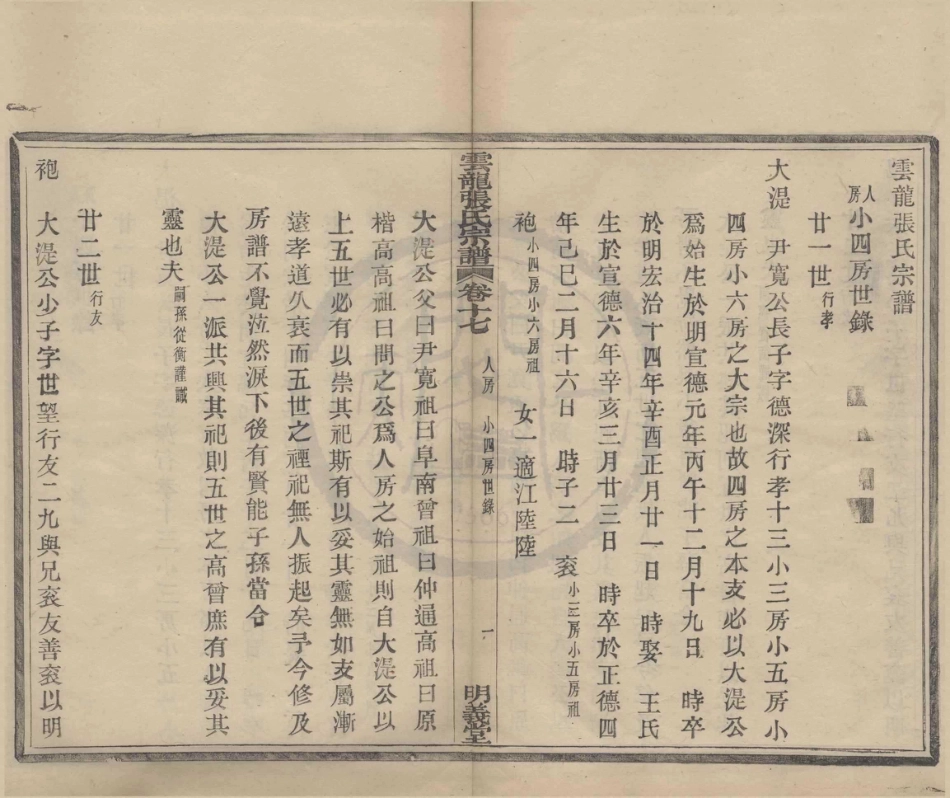 雲龍張氏宗譜
人房小四房世錄
廿一世行孝
大湜　尹寬公長子字德深行孝十三小三房小五房小
四房小六房之大宗也故四房之本支必以大湜公
爲始生於明宣德元年丙午十二月十九日　時卒
於明宏治十四年辛酉正月廿一日　時娶　王氏
生於宣德六年辛亥三月廿三日　時卒於正德四
年己巳二月十六日　時子二　袞小三房小五房祖
袍小四房小六房祖　女一適江陸陸
雲龍張氏宗譜　卷十七　人房　小四房世錄　一　明義堂
大湜公父曰尹寬祖曰阜南曾祖曰仲通高祖曰原
楷高高祖曰間之公爲人房之始祖則自大湜公以
上五世必有以崇其祀斯有以妥其靈無如支屬漸
遠孝道久衰而五世之禋祀無人振起矣予今修及
房譜不覺泣然淚下後有賢能子孫當合
大湜公一派共興其祀則五世之高曾庶有以妥其
靈也夫嗣孫從衡謹識
廿二世行友
袍　大湜公少子字世望行友二九與兄袞友善袞以明